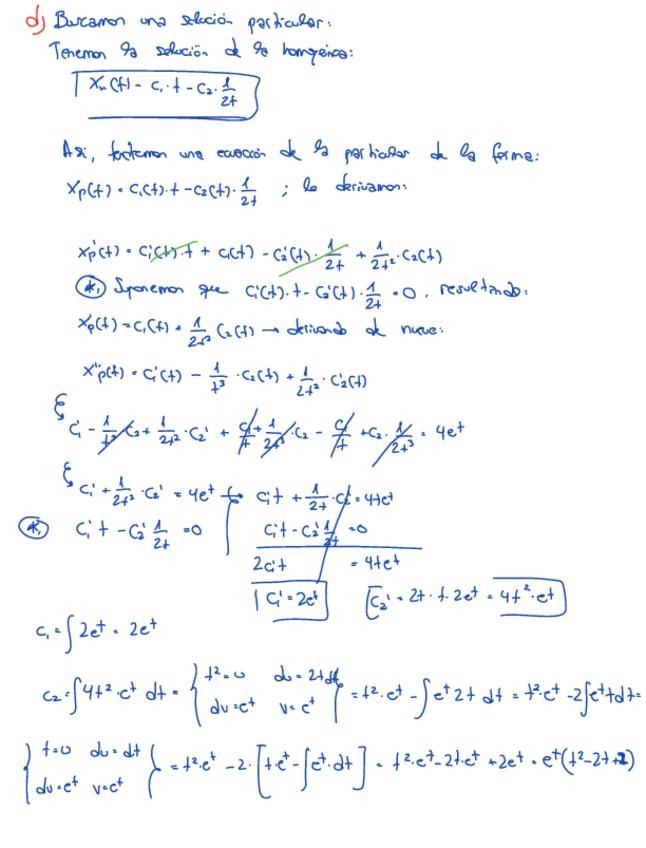 d) Buscamos una solución particular:
Tenemos la solución de la homogénea:
Xₕ(t) = C₁·t - C₂·1/2t
Así, tenemos una ecuación de la particular de la forma:
Xp(t) = C₁(t)·t - C₂(t)·1/2t ; la derivamos:
X'p(t) = C₁'(t)·t + C₁(t) - C₂'(t)·1/2t + 1/2t²·C₂(t)
(*) Suponemos que C₁'(t)·t - C₂'(t)·1/2t = 0, resultando:
X'p(t) = C₁(t) + 1/2t² C₂(t) → derivando de nuevo:
X''p(t) = C₁'(t) - 1/t³·C₂(t) + 1/2t²·C₂'(t)
C₁' - 1/t³·C₂ + 1/2t²·C₂' + C₁/t + 1/2t³·C₂ - C₁/t + C₂·1/2t³ = 4eᵗ
{ C₁' + 1/2t²·C₂' = 4eᵗ → C₁'t + 1/2t·C₂' = 4teᵗ
(*) C₁'t - C₂' 1/2t = 0 C₁'t - C₂' 1/2t = 0
2C₁'t = 4teᵗ
C₁' = 2eᵗ C₂' = 2t·t·2eᵗ = 4t²·eᵗ
C₁ = ∫2eᵗ = 2eᵗ
C₂ = ∫4t²·eᵗ dt = { t² = u du = 2t dt dv = eᵗ v = eᵗ } = t²·eᵗ - ∫eᵗ 2t dt = t²·eᵗ - 2∫eᵗt dt =
{ t = u du = dt dv = eᵗ v = eᵗ } = t²·eᵗ - 2·[t·eᵗ - ∫eᵗ·dt] = t²·eᵗ - 2t·eᵗ + 2eᵗ = eᵗ(t² - 2t + 2)